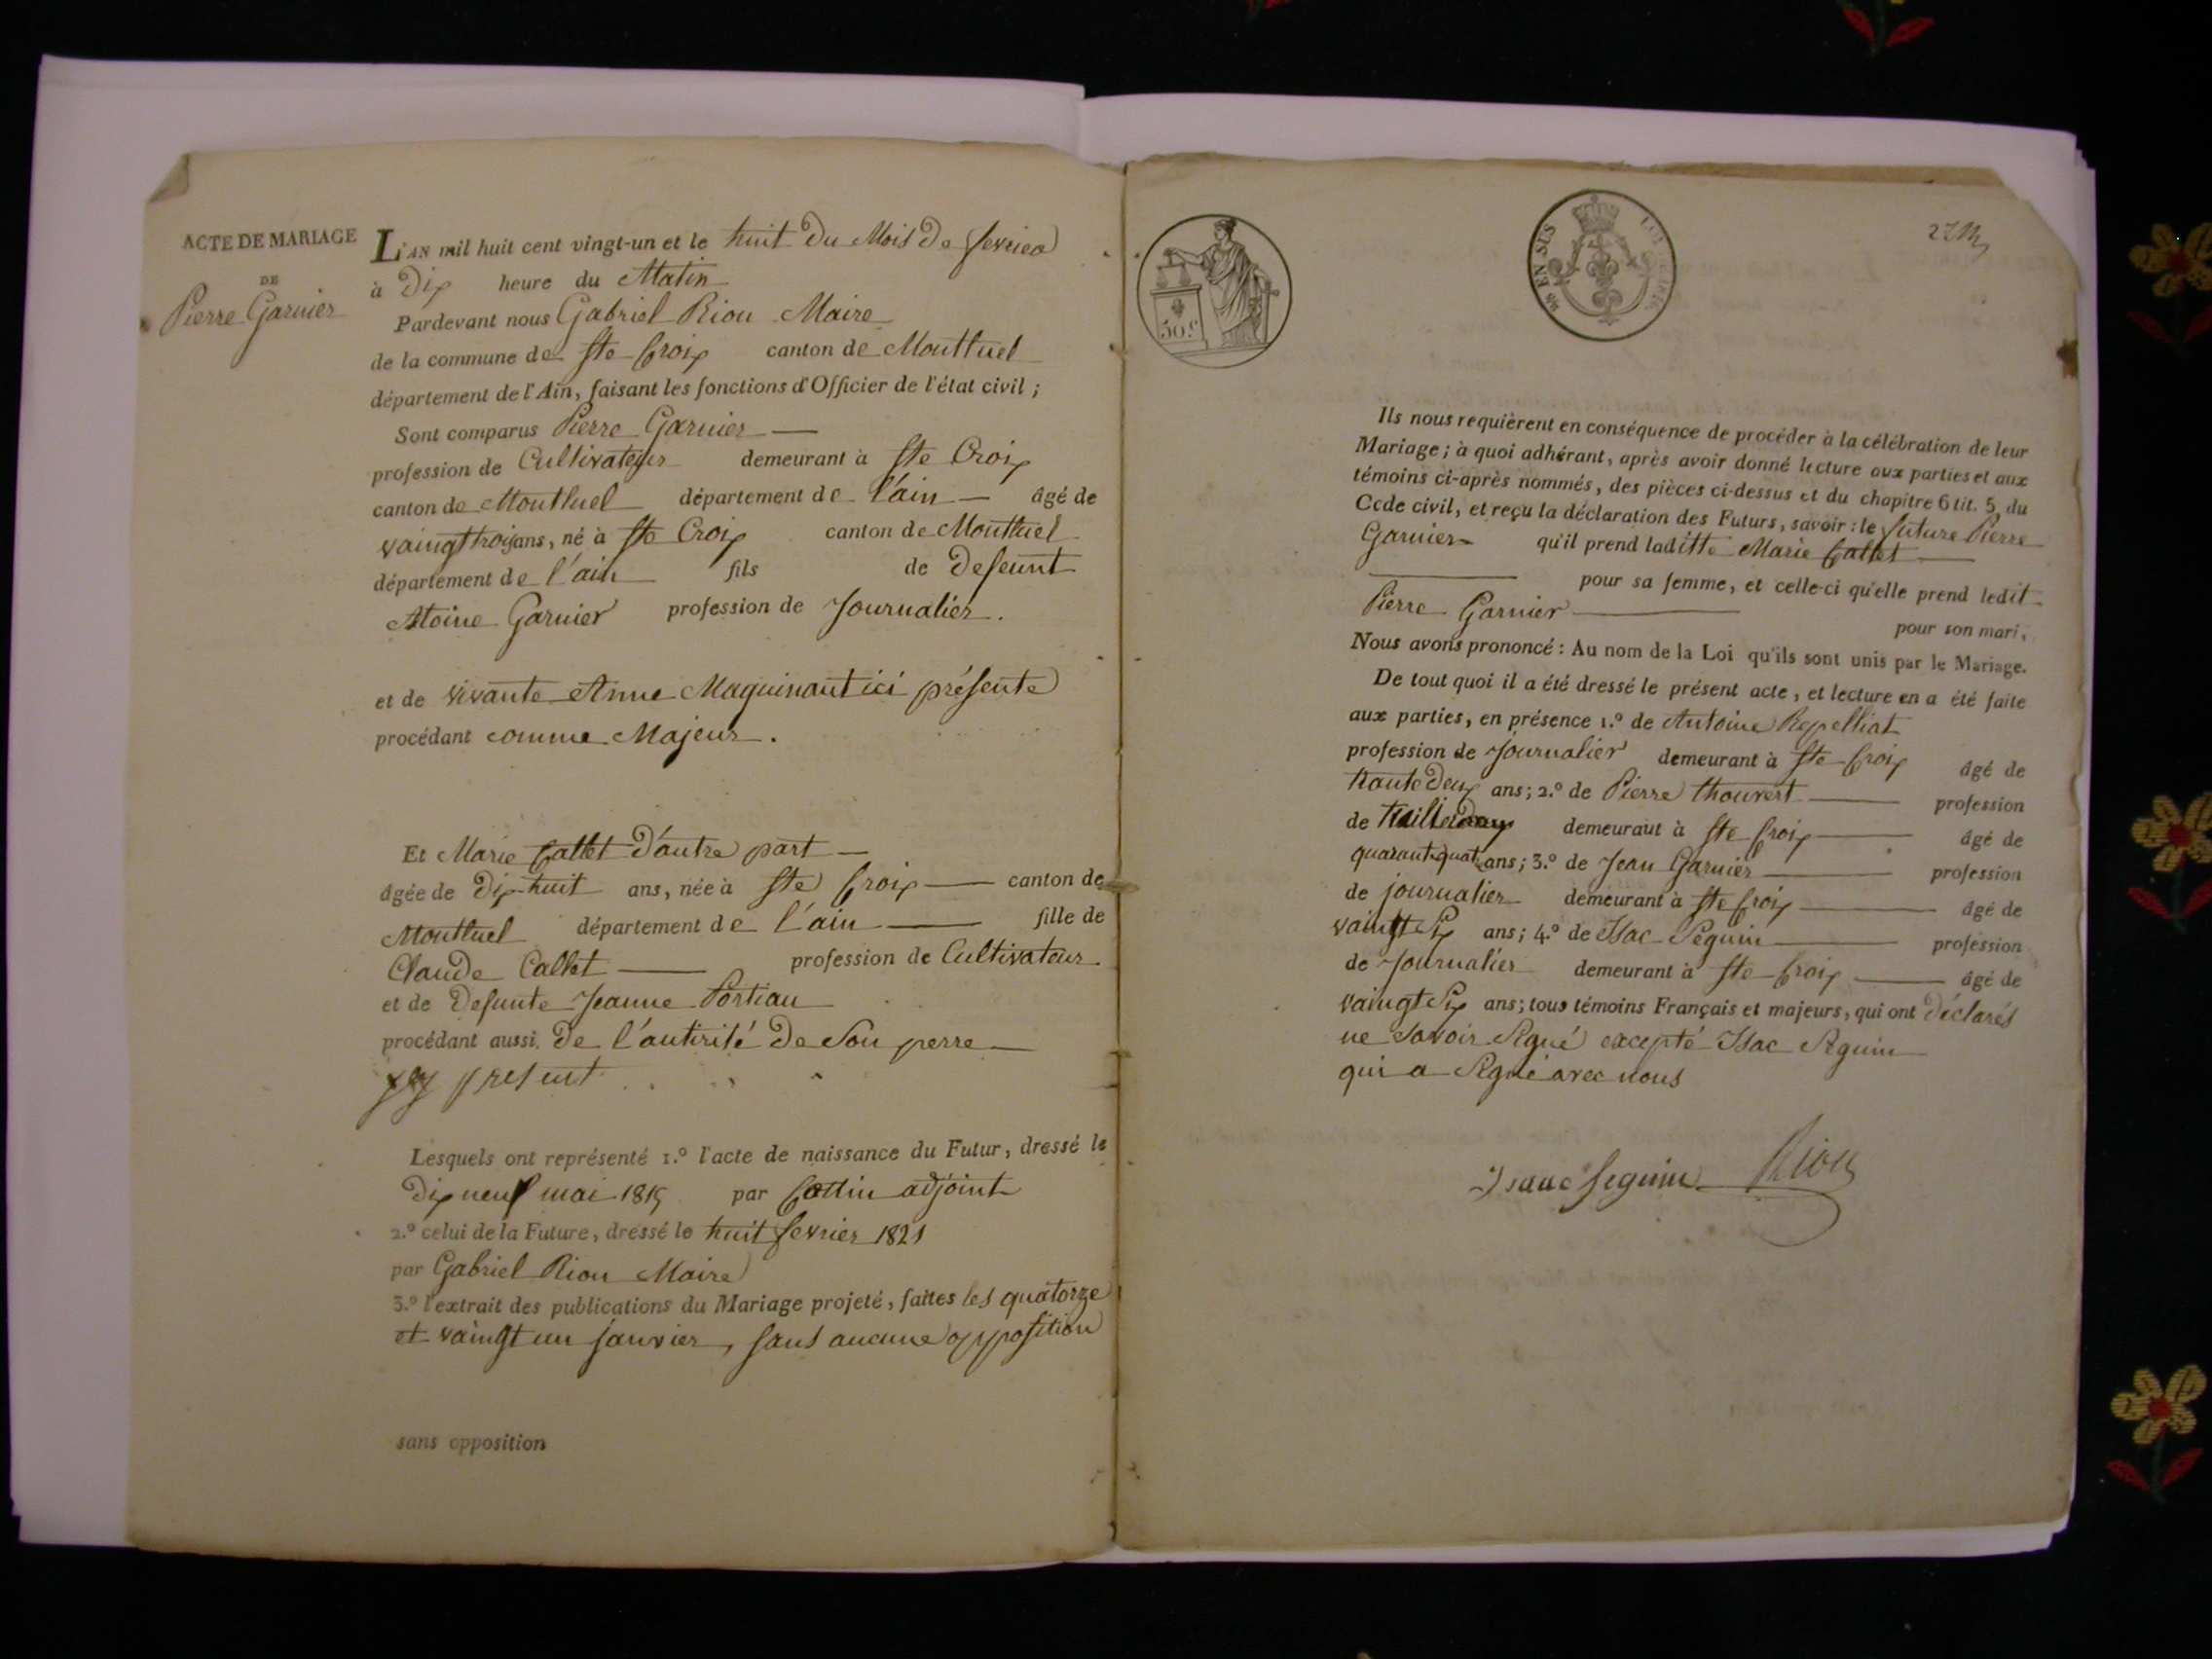 ACTE DE MARIAGE
DE
Pierre Garnier
L'AN mil huit cent vingt-un et le huit du Mois de fevrier
à Dix heure du Matin
Pardevant nous Gabriel Riou Maire
de la commune de Ste Croix canton de Montluel
département de l'Ain, faisant les fonctions d'Officier de l'état civil ;
Sont comparus Pierre Garnier
profession de Cultivateur demeurant à Ste Croix
canton de Montluel département de l'ain âgé de
vaingt trois ans, né à Ste Croix canton de Montluel
département de l'ain fils de defeunt
Atoine Garnier profession de Journalier.
et de vivante Anne Maguinant ici présente
procédant comme Majeur.
Et Marie Callet d'autre part
âgée de Dix-huit ans, née à Ste Croix canton de
Montluel département de l'ain fille de
Claude Callet profession de Cultivateur
et de Defunte Jeanne Portiau
procédant aussi de l'autirité de Son perre
present
Lesquels ont représenté 1.º l'acte de naissance du Futur, dressé le
Dix neuf mai par Cottin adjoint
2.º celui de la Future, dressé le huit fevrier 1821
par Gabriel Riou Maire
3.º l'extrait des publications du Mariage projeté, faites les quatorze
et vaingt un janvier, sans aucune opposition
sans opposition
50.c
EN SUS
Ils nous requièrent en conséquence de procéder à la célébration de leur
Mariage ; à quoi adhérant, après avoir donné lecture aux parties et aux
témoins ci-après nommés, des pièces ci-dessus et du chapitre 6 tit. 5 du
Code civil, et reçu la déclaration des Futurs, savoir : le future Pierre
Garnier qu'il prend laditte Marie Callet
pour sa femme, et celle-ci qu'elle prend ledit
Pierre Garnier
pour son mari,
Nous avons prononcé : Au nom de la Loi qu'ils sont unis par le Mariage.
De tout quoi il a été dressé le présent acte, et lecture en a été faite
aux parties, en présence 1.º de Antoine Repelliat
profession de Journalier demeurant à Ste Croix âgé de
trante Deux ans ; 2.º de Pierre thouvert profession
de demeurant à Ste Croix âgé de
quarant quat ans ; 3.º de Jean Garnier profession
de journalier demeurant à Ste Croix âgé de
vaingt Six ans ; 4.º de Isac Seguin profession
de Journalier demeurant à Ste Croix âgé de
vaingt Six ans ; tous témoins Français et majeurs, qui ont déclarés
ne Savoir Signé excepté Isac Seguin
qui a Signé avec nous
Isaac Seguin Riou